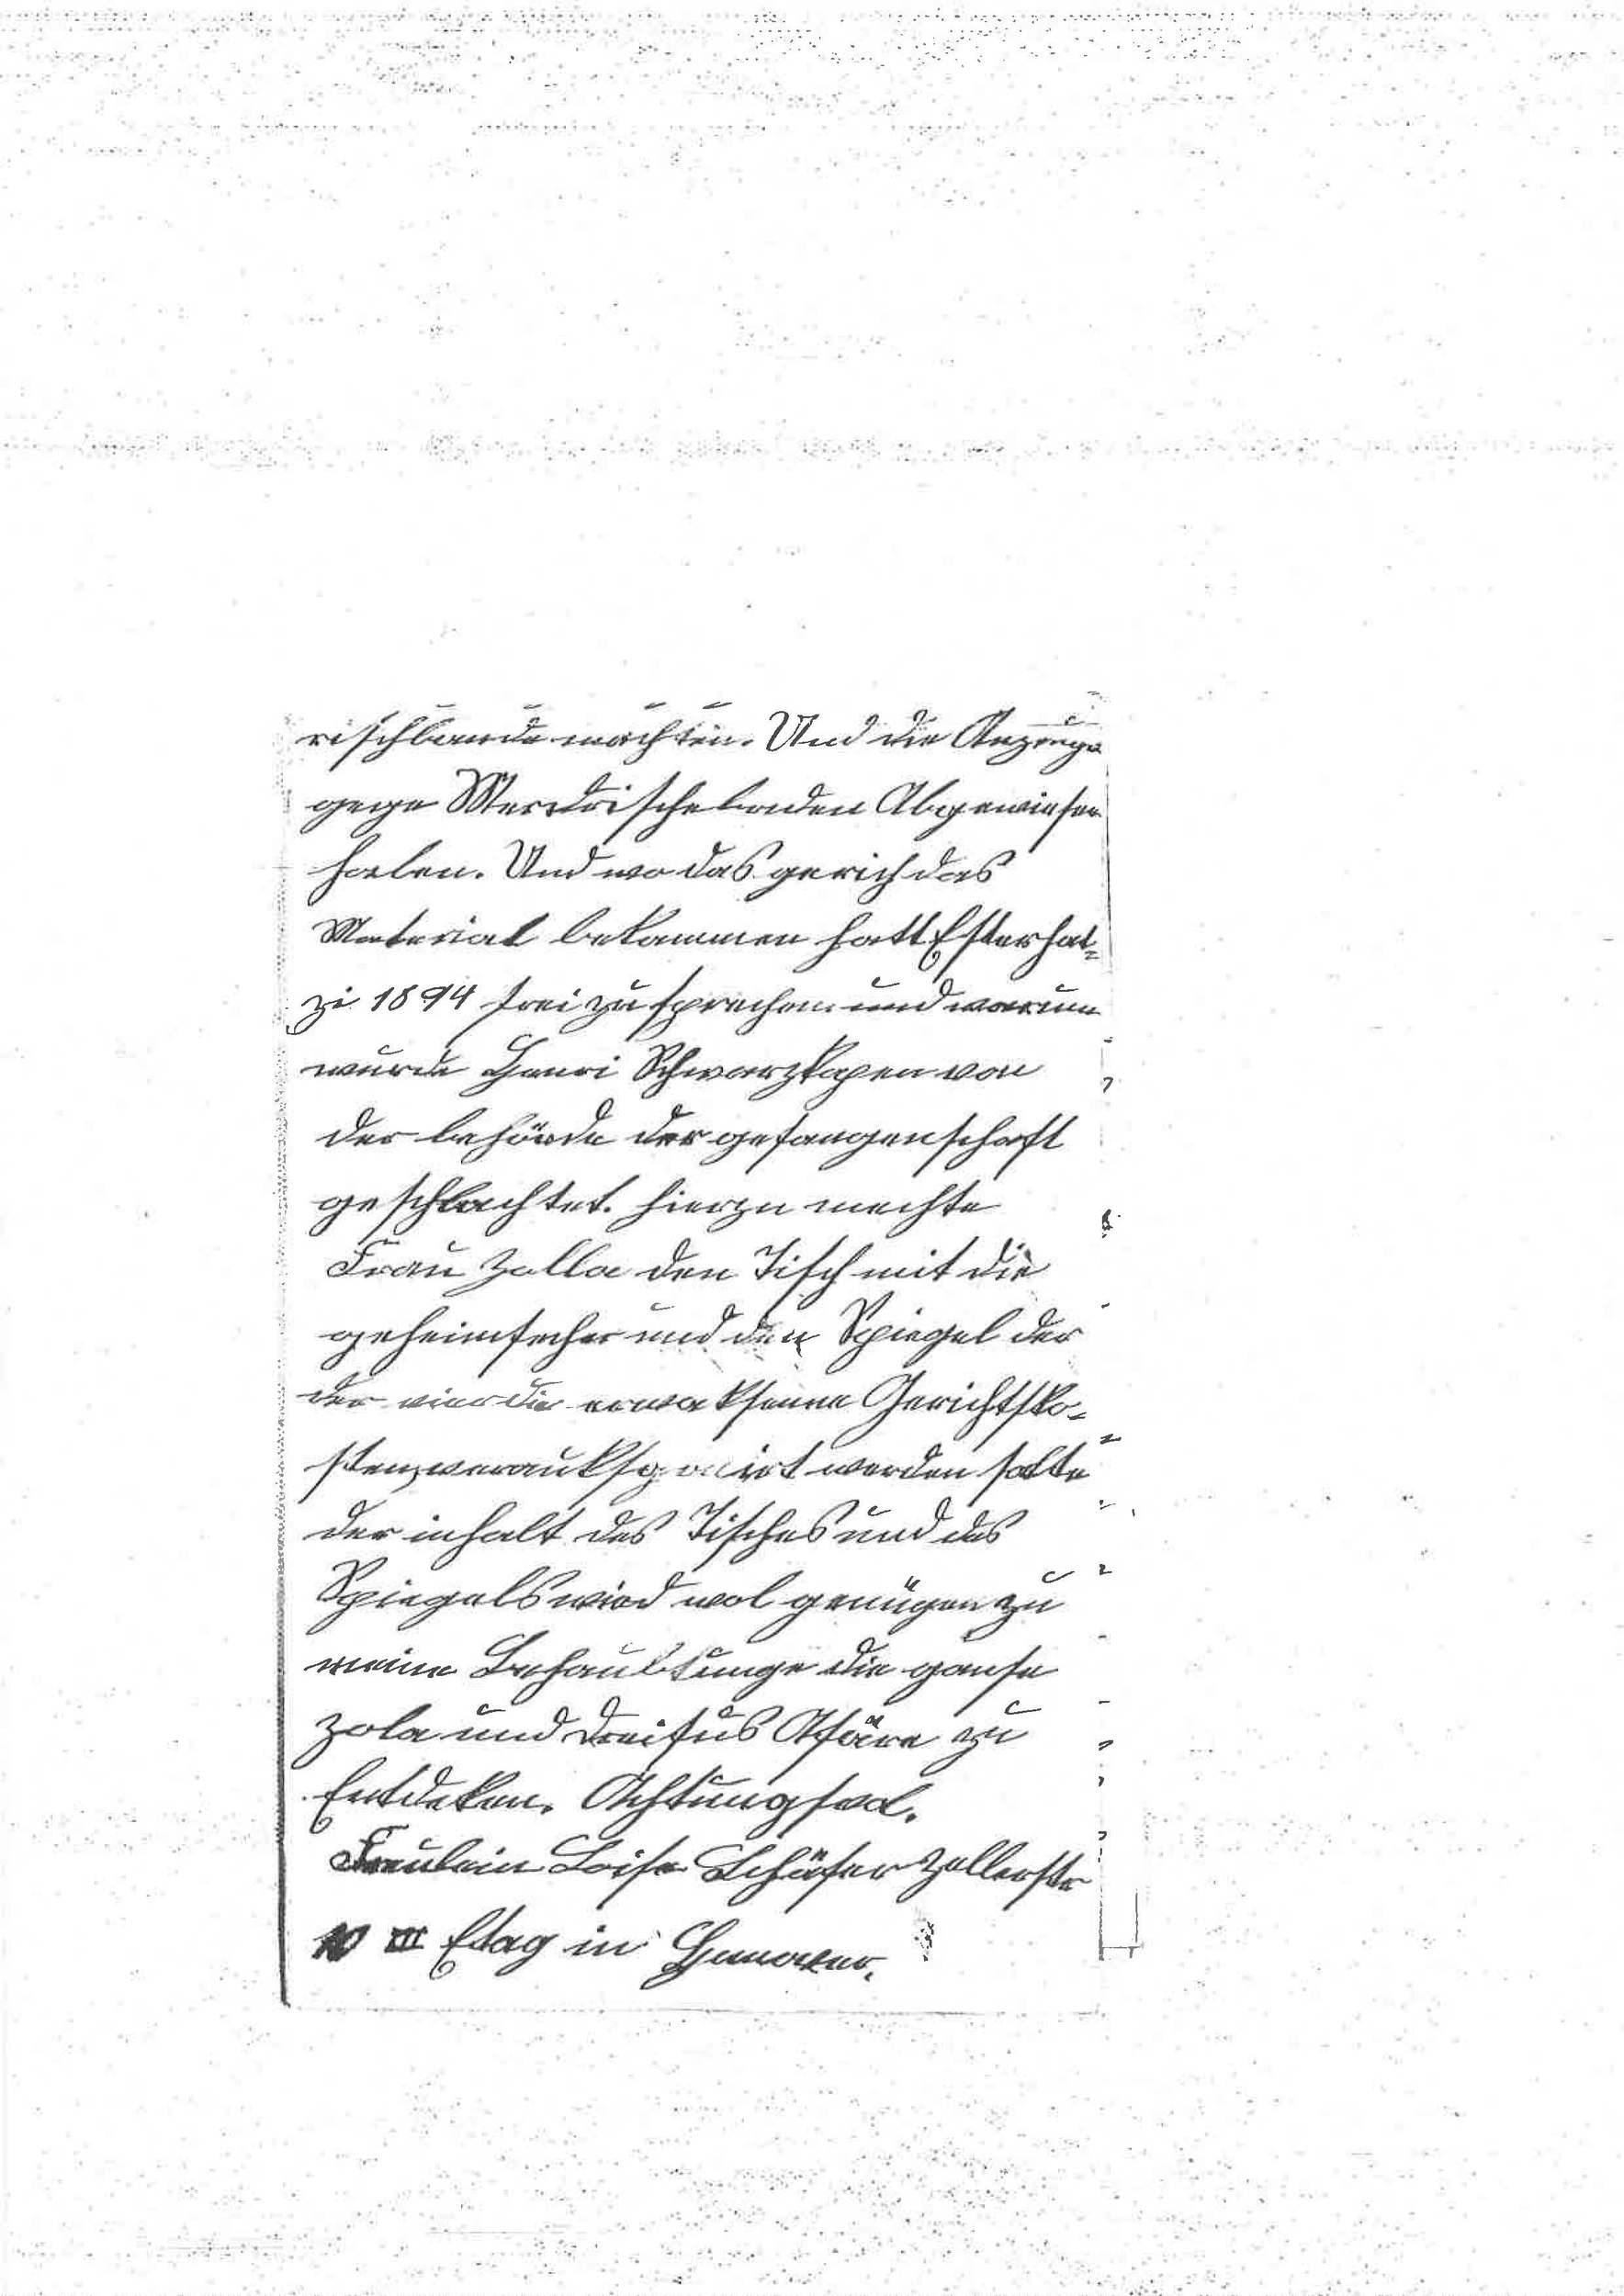 rischbande machten. Und die Anzeuge
gege Merdrischebanden Abgewiesen
haben. Und wo das gerich das
Material bekammen hatt Esterhat=
zi 1894 frei zu sprechen und warum
wurde Henri Schwarzkopen von
der behörde der gefangenschaft
geschlachtet. hierzu mechte
Frau Zolla den Tisch mit die
geheimfecher und den Spiegel der
der vier die erwaksenne Gerichtsko=
sten verauksgonirt werden solte
der inhalt des Tisches und des
Spiegels wird wol genügen zu
meine Behaubtunge die ganse
Zola und Dreifus Afäre zu
Entdeken. Achtungsfol.
Freulein Loise Schäfer Zellerstr
10 III Etag in Hannover.